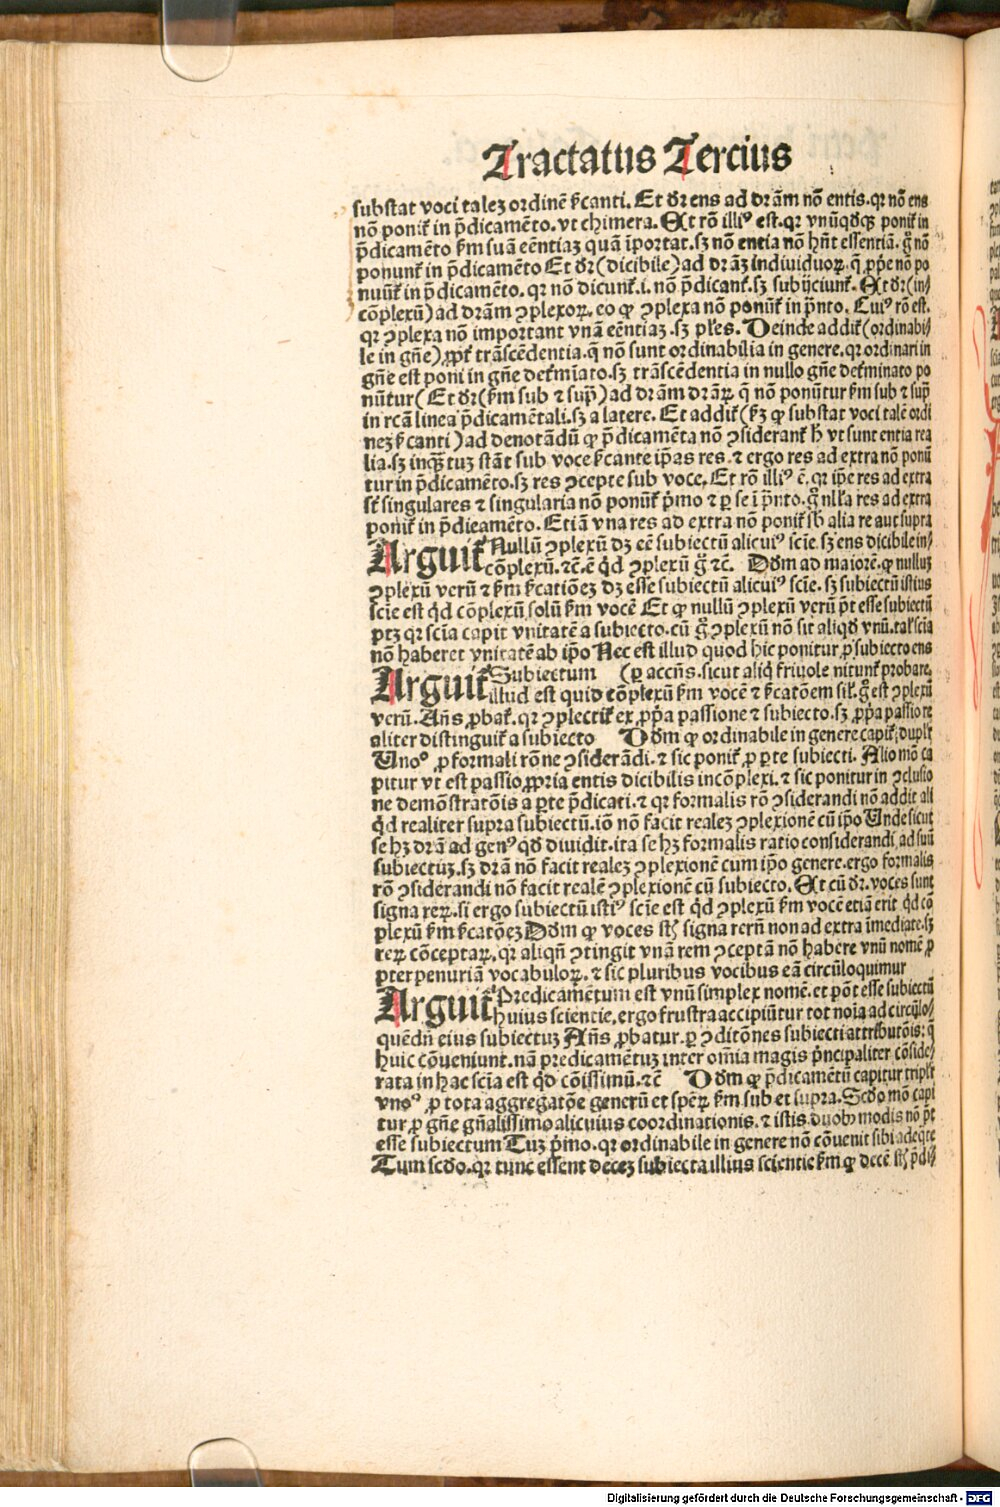 Tractatus Tercius
substat voci talez ordinē ſcanti. Et dr̄ ens ad dr̄am nō entis. qr nō ens
nō ponit̄ in p̄dicamēto. vt chimera. Et rō illiꝰ est. qr vnūqdqꝫ ponit̄ in
p̄dicamēto ſm suā eēntiaz quā īportat. sz nō entia nō hn̄t essentiā. ḡ nō
ponunt̄ in p̄dicamēto Et dr̄ (dicibile) ad dr̄āz indiuiduoꝝ. q̄ ꝓpe nō po
nūnt̄ in p̄dicamēto. qr nō dicunt̄. i. nō p̄dicant̄. sz subijciunt̄. Et dr̄ (in⸗
cōplexū) ad dr̄am ꝯplexoꝝ. eo ꝙ ꝯplexa nō ponūt̄ in p̄nto. Cuiꝰ rō est.
qr ꝯplexa nō important vnā eēntiaz. sz pl̄es. Deinde addit̄ (ordinabi⸗
le in gn̄e) ꝓpt̄ trāscēdentia. q̄ nō sunt ordinabilia in genere. qr ordinari in
gn̄e est poni in gn̄e det̄mīato. sz trāscēdentia in nullo gn̄e det̄minato po
nūtur (Et dr̄ (ſm sub ⁊ sup̄) ad dr̄am dr̄aꝝ q̄ nō ponūtur ſm sub ⁊ sup̄
in rc̄a linea p̄dicamētali. sz a latere. Et addit̄ (ſz ꝙ substat voci talē ordi
nez ſcanti) ad denotādū ꝙ p̄dicamēta nō ꝯsiderant̄ h̄ vt sunt entia rea
lia. sz inq̄tuz stāt sub voce ſcante ip̄as res. ⁊ ergo res ad extra nō ponū
tur in p̄dicamēto. sz res ꝯcepte sub voce. Et rō illiꝰ ē. qr ip̄e res ad extra
st̄ singulares ⁊ singularia nō ponūt̄ p̄mo ⁊ ꝑ se ī p̄nto. ḡ nll̄a res ad extra
ponit̄ in p̄dicamēto. Etiā vna res ad extra nō ponit̄ sb̄ alia re aut supra
Arguit̄ Nullū ꝯplexū dz eē subiectū alicuiꝰ scīe. sz ens dicibile in⸗
cōplexū. ⁊c̄. ē q̄d ꝯplexū ḡ ⁊c̄. Dd̄m ad maiorē. ꝙ nulluz
ꝯplexū verū ⁊ ſm ſcatiōez dz esse subiectū alicuiꝰ scīe. sz subiectū istius
scīe est q̄d cōplexū solū ſm vocē Et ꝙ nullū ꝯplexū verū p̄t esse subiectū
ptz qr scīa capit vnitatē a subiecto. cū ḡ ꝯplexū nō sit aliqd vnū. tal̄ scīa
nō haberet vnitatē ab ip̄o Nec est illud quod hic ponitur ꝓ subiecto ens
Arguit̄ Subiectum (ꝑ accn̄s. sicut aliq̄ friuole nitunt̄ probare.
illud est quid cōplexū ſm vocē ⁊ ſcatōem sil̄. ḡ est ꝯplexū
verū. An̄s ꝓbat̄. qr ꝯplectit̄ ex ꝓp̄a passione ⁊ subiecto. sz ꝓp̄a passio re
aliter distinguit̄ a subiecto Dd̄m ꝙ ordinabile in genere capit̄ dupl̄r
Unoº ꝓ formali rōne ꝯsiderādi. ⁊ sic ponit̄ ꝓ ꝑte subiecti. Alio mō ca
pitur vt est passio ꝓpria entis dicibilis incōplexi. ⁊ sic ponitur in ꝯclusio
ne demōstratōis a ꝑte p̄dicati. ⁊ qr formalis rō ꝯsiderandi nō addit ali
q̄d realiter supra subiectū. iō nō facit realez ꝯplexionē cū ip̄o Unde sicut
se hz dr̄a ad genꝰ qd̄ diuidit. ita se hz formalis ratio considerandi ad suū
subiectuz. sz dr̄a nō facit realez ꝯplexionē cum ip̄o genere. ergo formalis
rō ꝯsiderandi nō facit realē ꝯplexionē cū subiecto. Et cū dr̄. voces sunt
signa reꝝ. si ergo subiectū istiꝰ scīe est q̄d ꝯplexū ſm vocē etiā erit q̄d cō
plexū ſm ſcatōez Dd̄m ꝙ voces st̄ signa rerū non ad extra īmediate. sz
reꝝ cōceptaꝝ. qr aliqn̄ ꝯtingit vnā rem ꝯceptā nō habere vnū nomē ꝓ
pter penuriā vocabuloꝝ. ⁊ sic pluribus vocibus eā circūloquimur
Arguit̄ Predicamētum est vnū simplex nomē. et pōt esse subiectū
huius scientie. ergo frustra accipiūtur tot noīa ad circūlo⸗
quēdū eius subiectuz An̄s ꝓbatur. ꝑ ꝯditōnes subiecti attributōis: q̄
huic cōueniunt. nā predicamētuz inter om̄ia magis p̄ncipaliter cōside⸗
rata in hac scīa est q̄d cōissimū. ⁊c̄ Dd̄m ꝙ p̄dicamētū capitur tripl̄r
vnoº ꝓ tota aggregatōe generū et sp̄eꝝ ſm sub et supra. Scdo mō capi
tur ꝓ gn̄e gn̄alissimo alicuius coordinationis. ⁊ istis duobꝫ modis nō p̄t
esse subiectum Tuz p̄mo. qr ordinabile in genere nō cōuenit sibi adeq̄te
Tum scdo. qr tunc essent decez subiecta illius scientie ſm ꝙ decē st̄ p̄di⸗
Digitalisierung gefördert durch die Deutsche Forschungsgemeinschaft - DFG